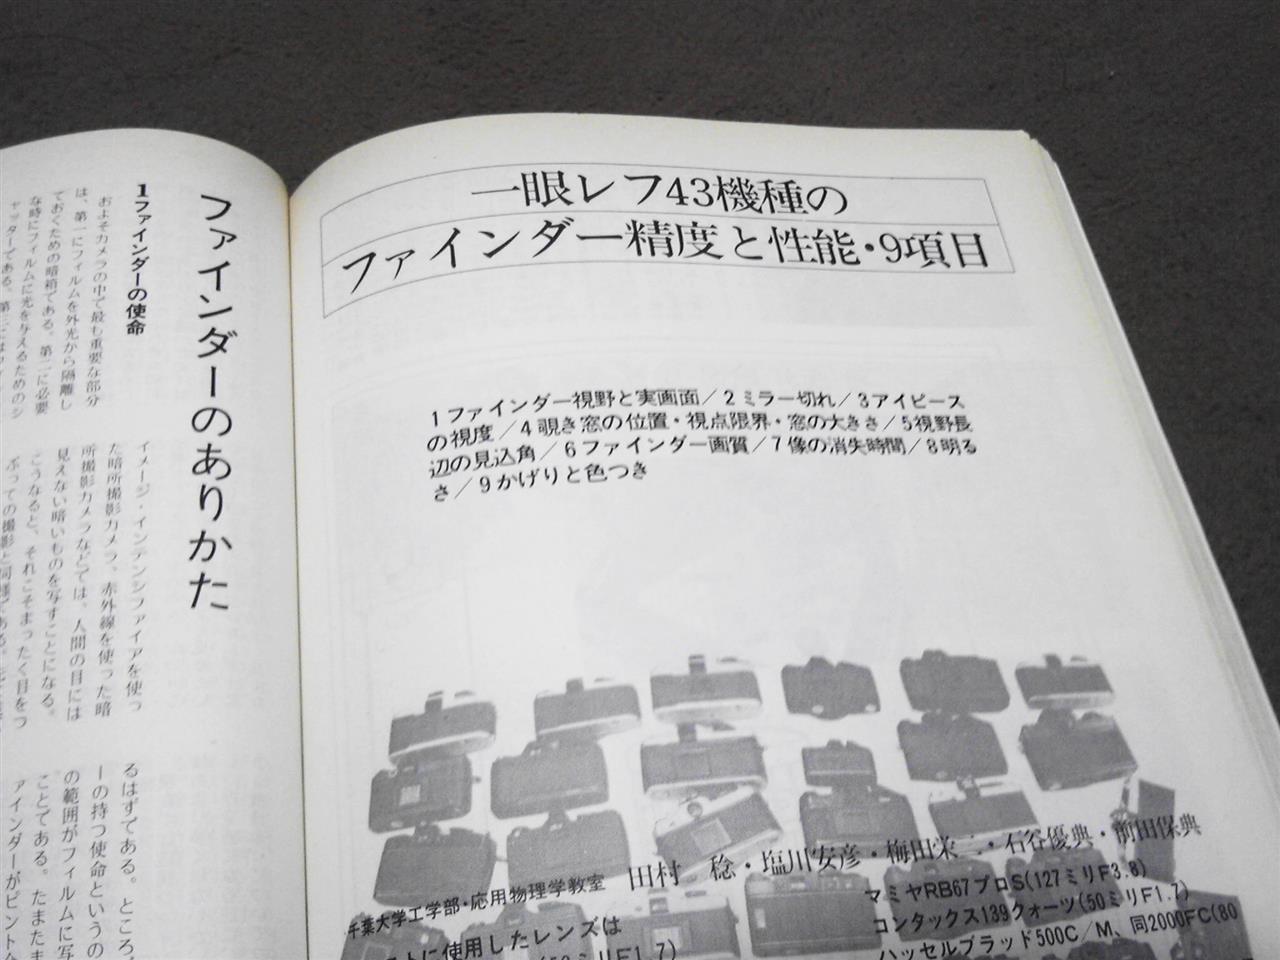 一眼レフ43機種の
ファインダー精度と性能・9項目
1ファインダー視野と実画面／2ミラー切れ／3アイピース
の視度／4覗き窓の位置・視点限界・窓の大きさ／5視野長
辺の見込角／6ファインダー画質／7像の消失時間／8明る
さ／9かげりと色つき
千葉大学工学部・応用物理学教室 田村 稔・塩川安彦・梅田栄二・石谷優典・前田保典
ストに使用したレンズは
マミヤRB67プロS(127ミリF3.8)
コンタックス139クォーツ(50ミリF1.7)
ハッセルブラッド500C／M、同2000FC(80
ファインダーのありかた
1ファインダーの使命
およそカメラの中で最も重要な部分
は、第一にフィルムを外光から隔離し
ておくための暗箱である。第二に必要
な時にフィルムに光を与えるためのシ
ャッターである。
イメージ・インテンシファイアを使っ
た暗所撮影カメラ、赤外線を使った暗
所撮影カメラなどでは、人間の目には
見えない暗いものを写すことになる。
こうなると、それこそまったく目をつ
ぶっての撮影と同様である。
るはずである。ところ
ーの持つ使命というの
の範囲がフィルムに写
ことである。たまたま
ァインダーがピント